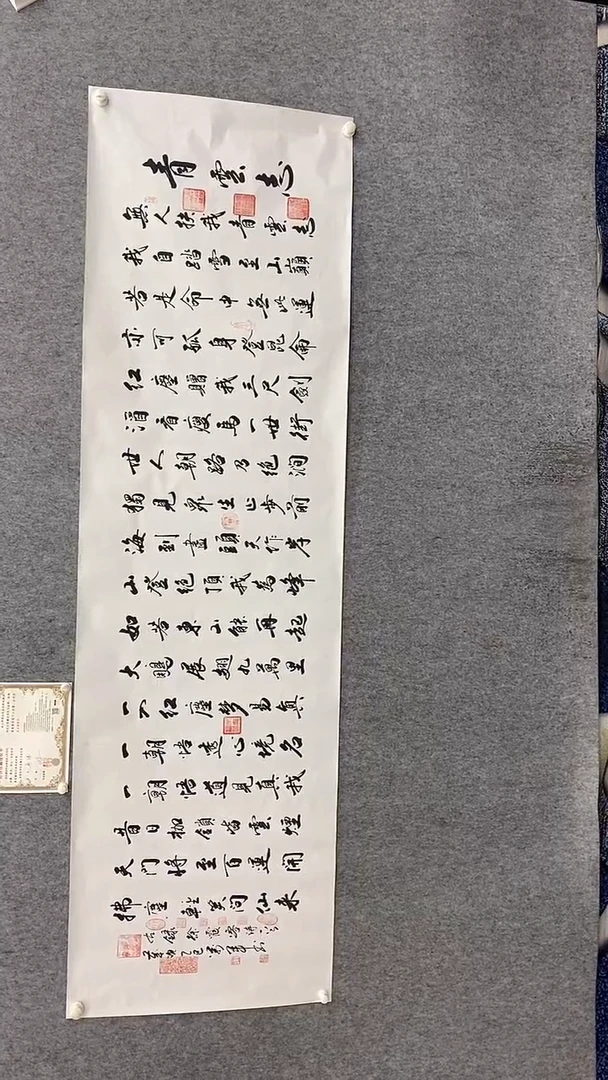 青雲志
無人扶我青雲志
我自踏雪至山巔
若是命中無此運
亦可孤身登昆侖
紅塵贈我三尺劍
看瘦馬一世街
世人朝路乃絕澗
獨見眾生止步前
海到盡頭天作岸
山登絕頂我為峰
如若東山能再起
大鵬展翅九萬里
一入紅塵夢易真
一朝悟透心境名
一朝悟道見真我
昔日枷鎖皆雲煙
天門將至百運開
拂塵輕笑問仙來
錄徐霞客
乙巳